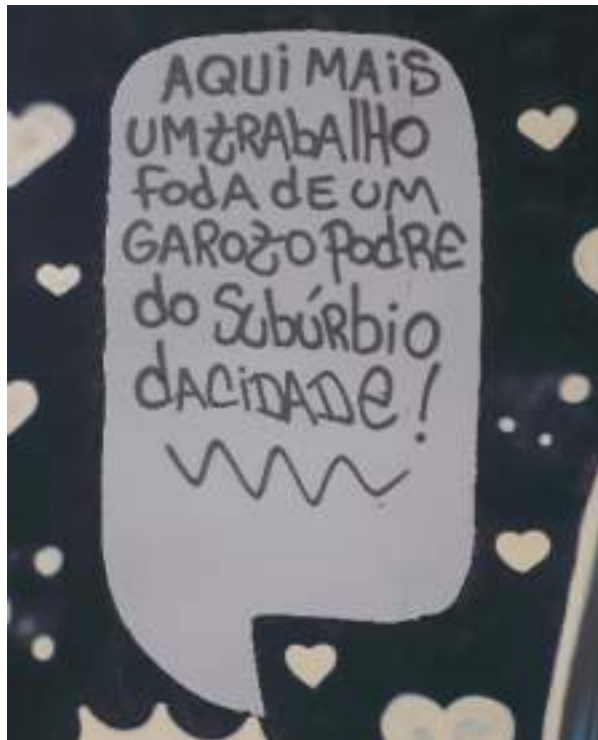 AQUI MAIS
UM tRAbAlHO
FodA dE UM
GAROtO PodRE
do SUbÚRbiO
dA CiDADe!